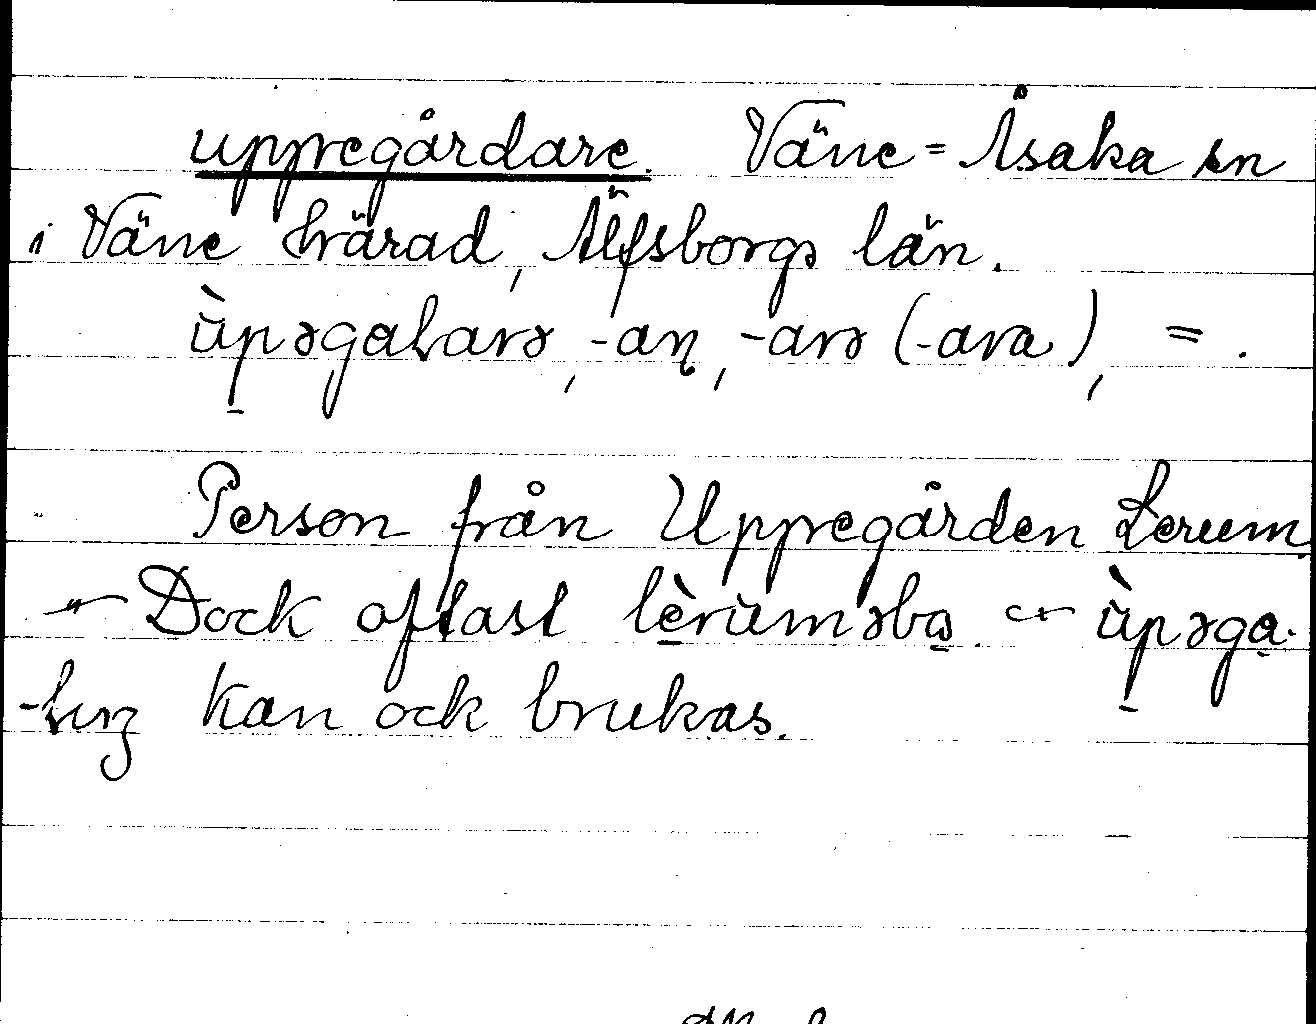 uppegårdare. Väne=Åsaka sn
i Väne härad, Älfsborgs län.
ùpəgalarə, -aɳ, -arə (-ara), = .
Person från Uppegården Lerum.
— Dock oftast lèrùmsbo. — ùpəga-
kan ock brukas.